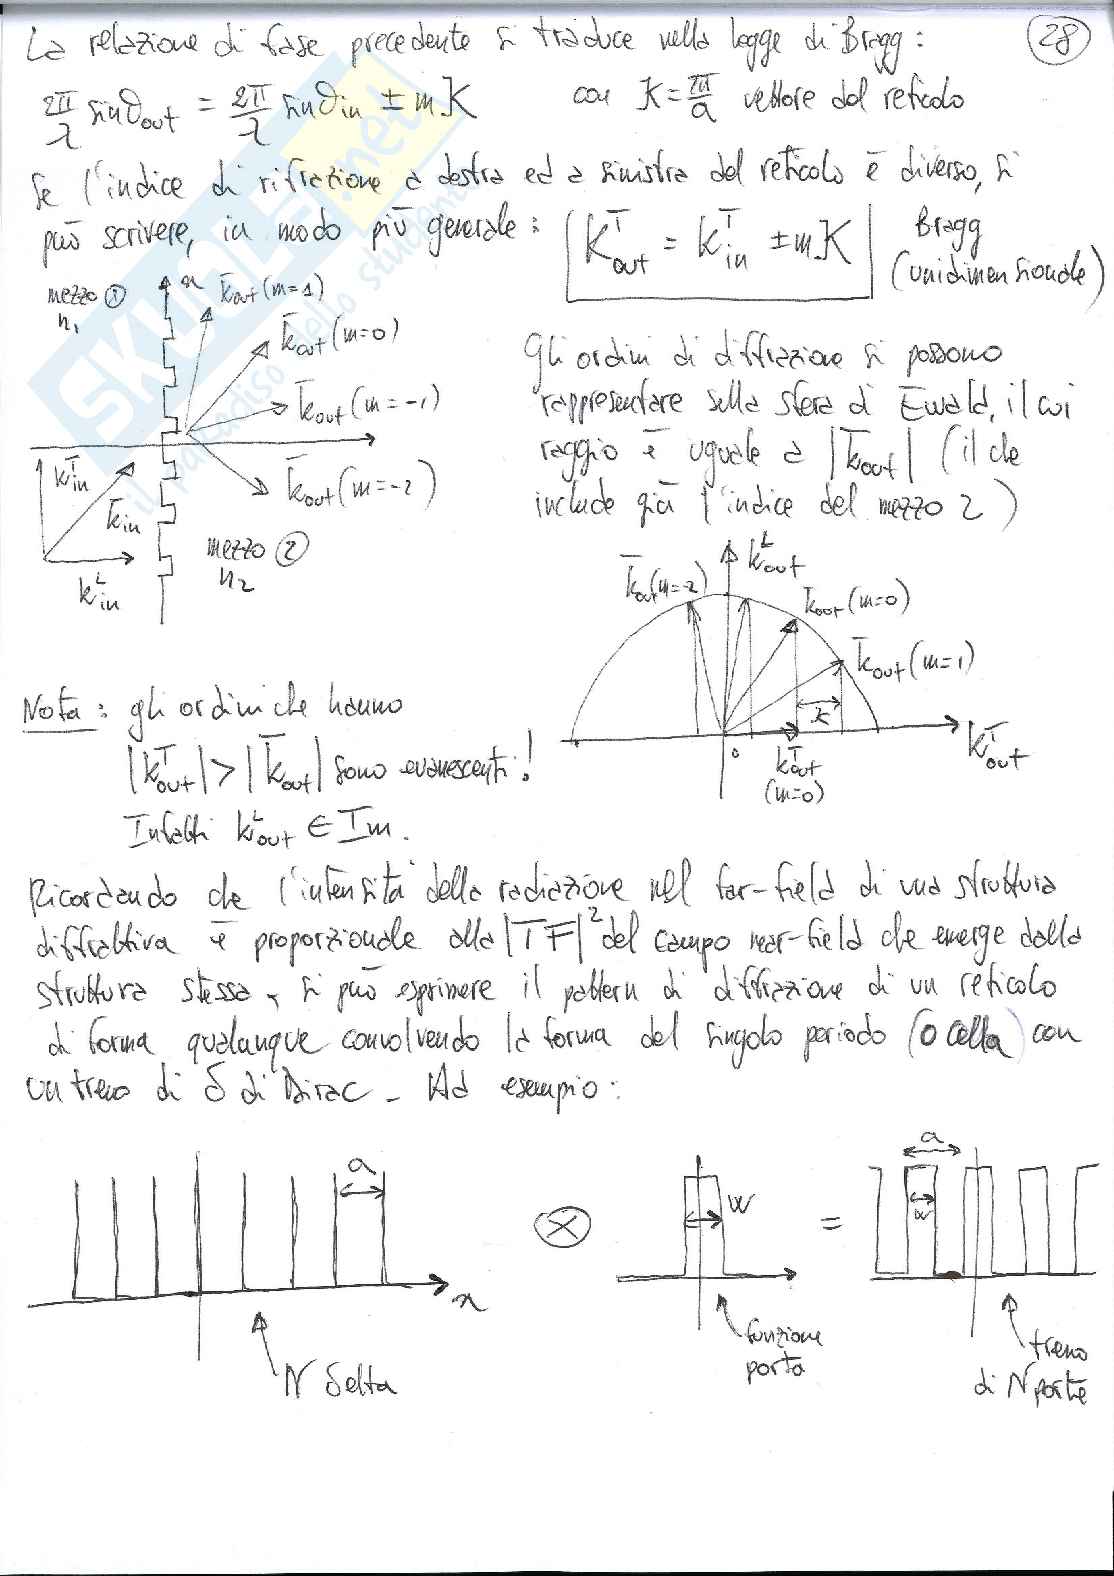 La relazione di fase precedente si traduce nella legge di Bragg: 28
2π/λ sinθout = 2π/λ sinθin ± mK con K = 2π/a vettore del reticolo
Se l'indice di rifrazione a destra ed a sinistra del reticolo è diverso, si
può scrivere, in modo più generale: K̄ᵀout = k̄ᵀin ± mK Bragg
(unidimensionale)
mezzo ①
n₁
x
k̄out (m=1)
k̄out (m=0)
k̄out (m=-1)
k̄out (m=-2)
k̄ᵀin
k̄in
kᴸin
mezzo ②
n₂
Gli ordini di diffrazione si possono
rappresentare sulla sfera di Ewald, il cui
raggio è uguale a |k̄out| (il che
include già l'indice del mezzo 2)
kᴸout
k̄out (m=-2)
k̄out (m=0)
k̄out (m=1)
K
0
k̄ᵀout
(m=0)
k̄ᵀout
Nota: gli ordini che hanno
|k̄ᵀout| > |k̄out| sono evanescenti!
Infatti kᴸout ∈ Im.
Ricordando che l'intensità della radiazione nel far-field di una struttura
diffrattiva è proporzionale alla |TF|² del campo near-field che emerge dalla
struttura stessa, si può esprimere il pattern di diffrazione di un reticolo
di forma qualunque convolvendo la forma del singolo periodo (o cella) con
un treno di δ di Dirac. Ad esempio:
a
x
N delta
⊗
w
funzione
porta
=
a
w
treno
di N porte
SKUOLA.net
il paradiso dello studente